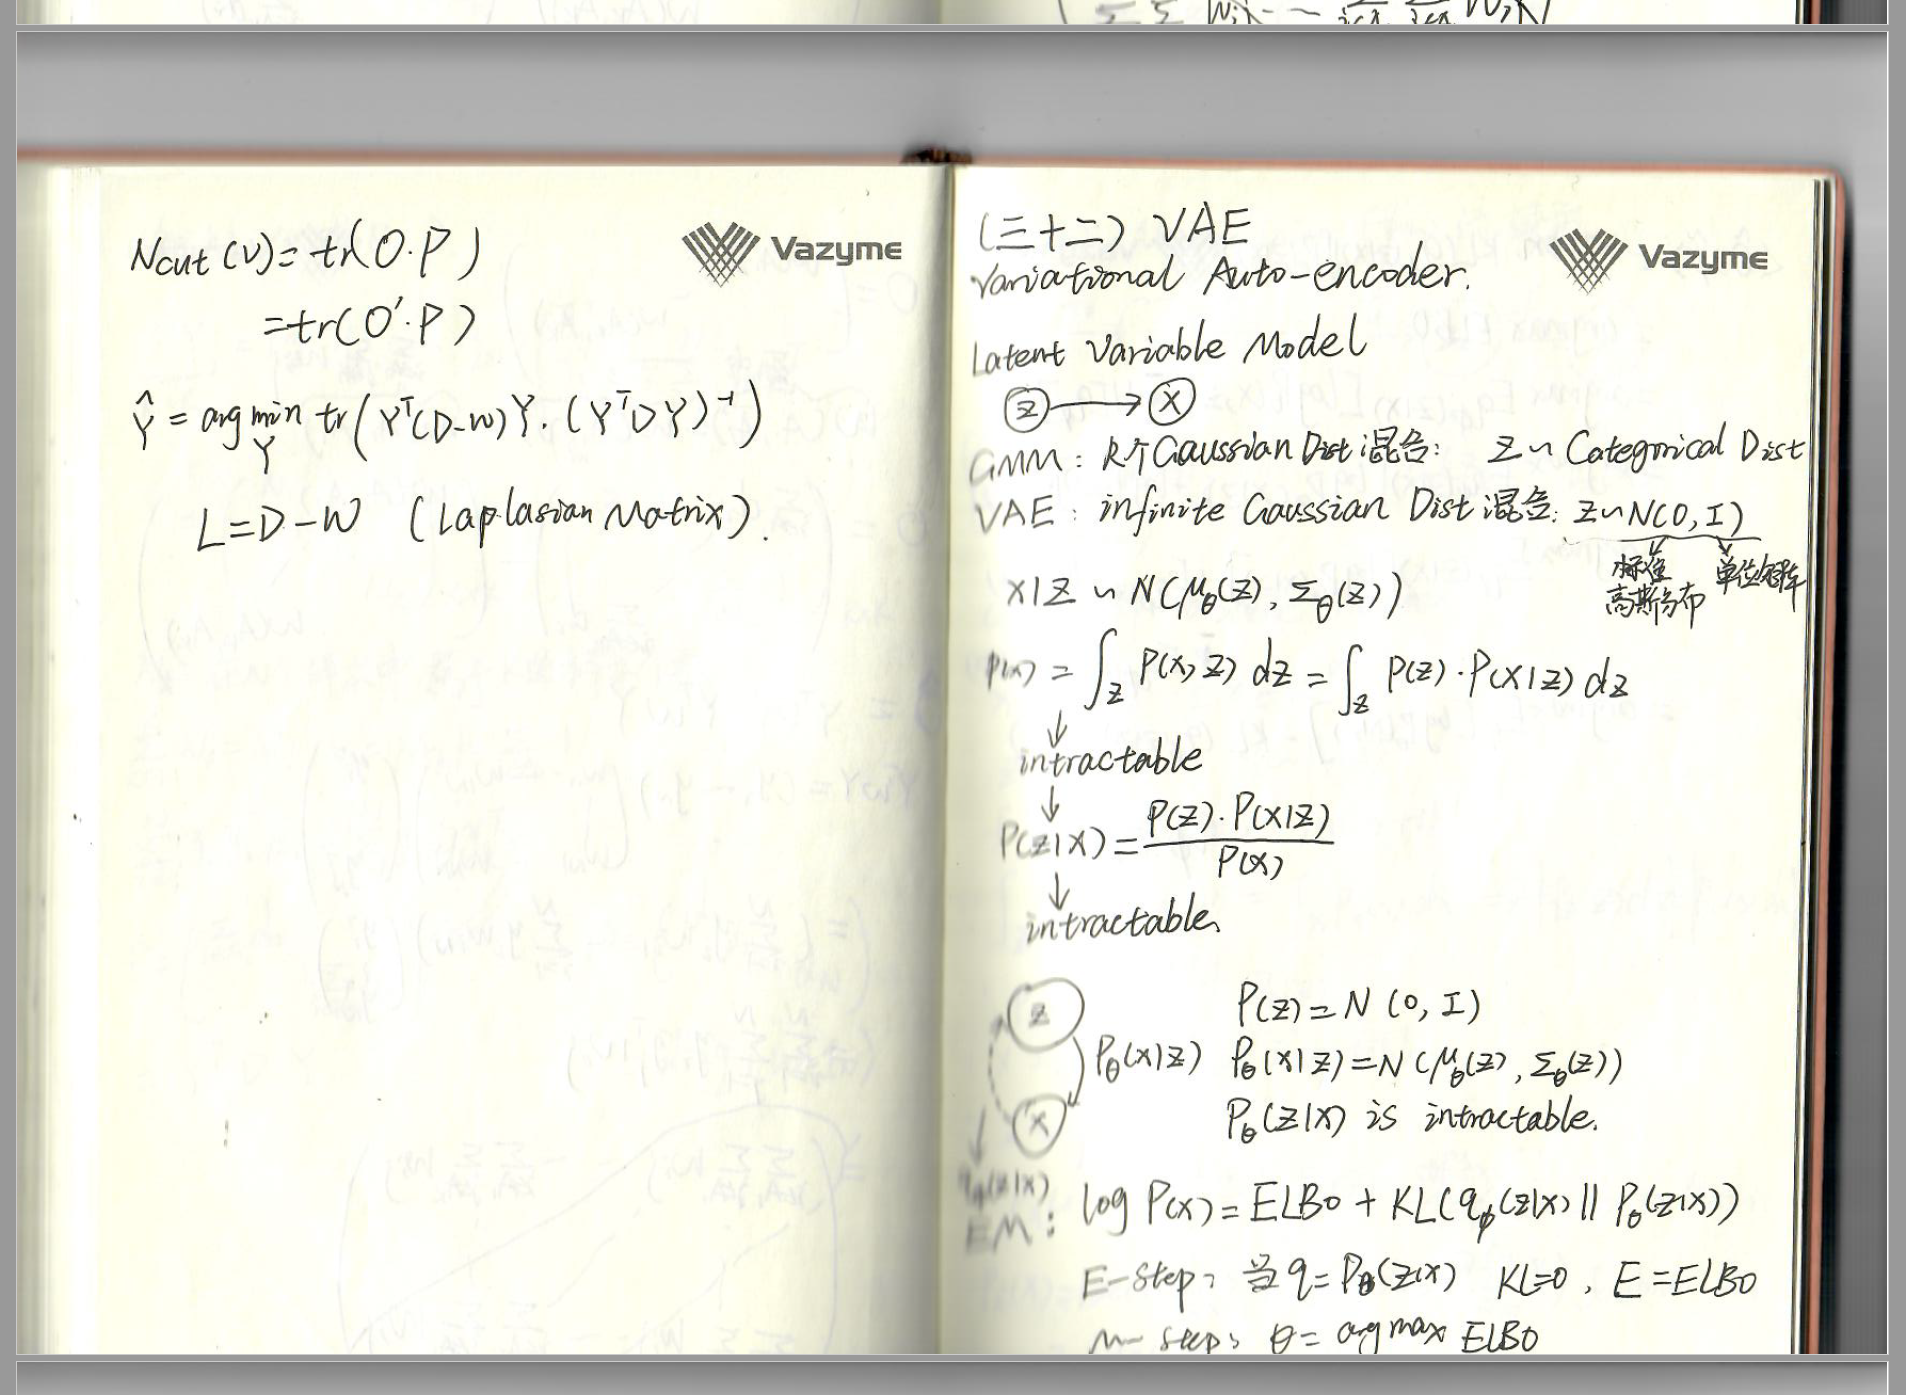 Ncut (V) = tr(O·P)
= tr(O'·P)
Ŷ = arg min tr(Yᵀ(D-W)Y·(YᵀDY)⁻¹)
Y
L=D-W (Laplasian Matrix).
Vazyme
(三十二) VAE
Vazyme
Variational Auto-encoder.
Latent Variable Model
z → x
GMM: k个Gaussian Dist混合: z ~ Categorical Dist
VAE: infinite Gaussian Dist混合: z ~ N(0, I)
标准 单位矩阵
高斯分布
x|z ~ N(μθ(z), Σθ(z))
P(x) = ∫z P(x, z) dz = ∫z P(z)·P(x|z) dz
↓
intractable
↓
P(z|x) = P(z)·P(x|z)
P(x)
↓
intractable.
z P(z) = N(0, I)
Pθ(x|z) Pθ(x|z) = N(μθ(z), Σθ(z))
x Pθ(z|x) is intractable.
qφ(z|x)
EM: log P(x) = ELBO + KL(qφ(z|x) || Pθ(z|x))
E-step: 当 q = Pθ(z|x) KL=0, E = ELBO
M-step: θ = arg max ELBO